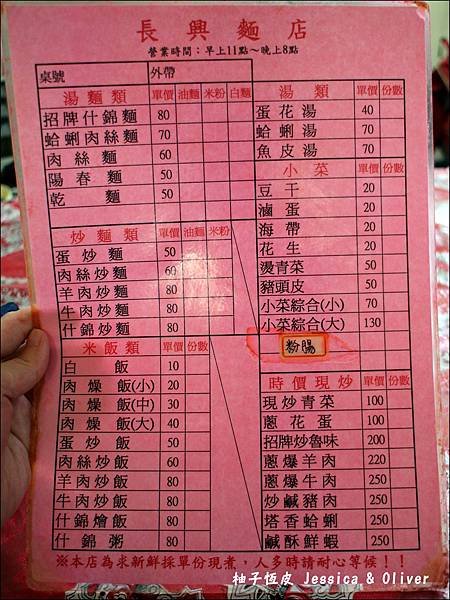 長興麵店
營業時間：早上11點～晚上8點
桌號 外帶
湯麵類 單價 油麵 米粉 白麵
招牌什錦麵 80
蛤蜊肉絲麵 70
肉絲麵 60
陽春麵 50
乾麵 50
炒麵類 單價 油麵 米粉
蛋炒麵 50
肉絲炒麵 60
羊肉炒麵 80
牛肉炒麵 80
什錦炒麵 80
米飯類 單價 份數
白飯 10
肉燥飯(小) 20
肉燥飯(中) 30
肉燥飯(大) 40
蛋炒飯 50
肉絲炒飯 60
羊肉炒飯 80
牛肉炒飯 80
什錦燴飯 80
什錦粥 80
湯類 單價 份數
蛋花湯 40
蛤蜊湯 70
魚皮湯 70
小菜 單價 份數
豆干 20
滷蛋 20
海帶 20
花生 20
燙青菜 50
豬頭皮 50
小菜綜合(小) 70
小菜綜合(大) 130
粉腸
時價現炒 單價 份數
現炒青菜 100
蔥花蛋 100
招牌炒魯味 200
蔥爆羊肉 220
蔥爆牛肉 250
炒鹹豬肉 250
塔香蛤蜊 250
鹹酥鮮蝦 250
※本店為求新鮮採單份現煮，人多時請耐心等候！！
柚子恆皮 Jessica & Oliver